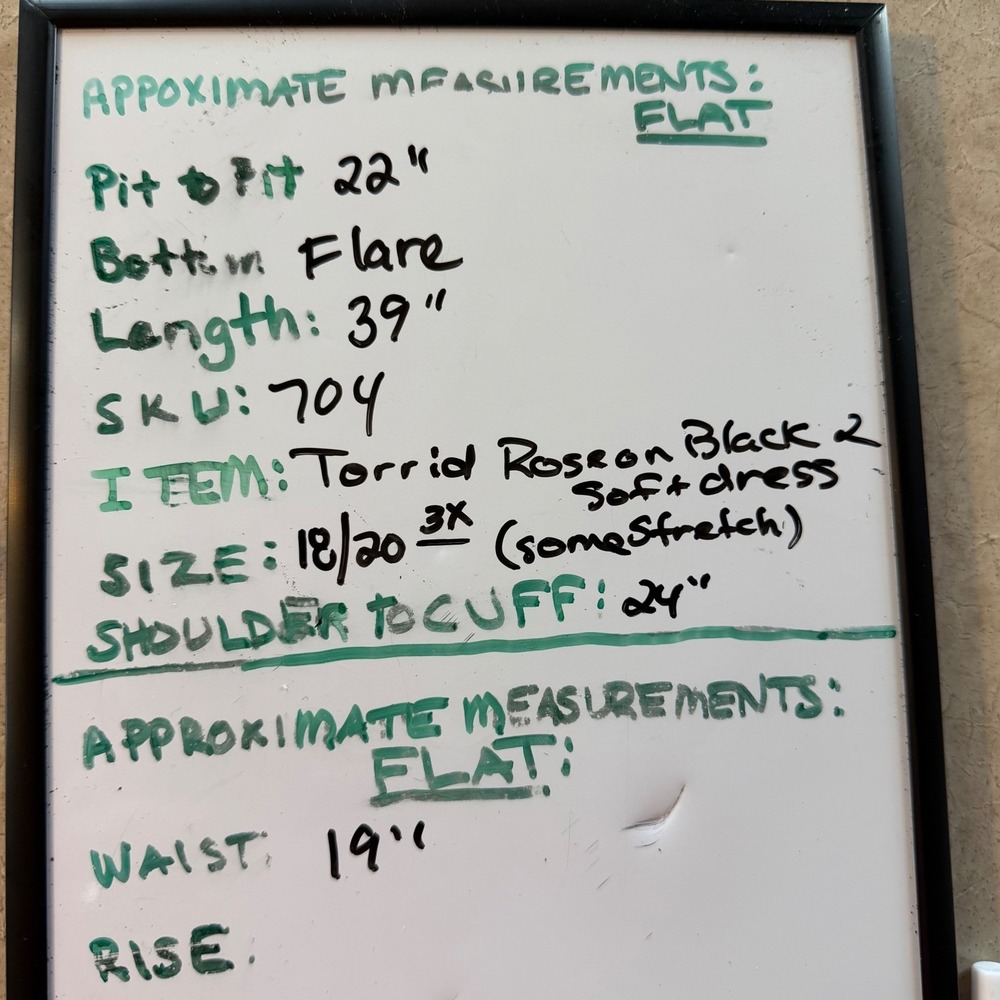 APPOXIMATE MEASUREMENTS:
FLAT
Pit to Pit 22"
Bottom Flare
Length: 39"
SKU: 704
ITEM: Torrid Roseon Black 2
Soft dress
SIZE: 18/20 3X (some Stretch)
SHOULDER TO CUFF: 24"
APPROXIMATE MEASUREMENTS:
FLAT:
WAIST: 19"
RISE.